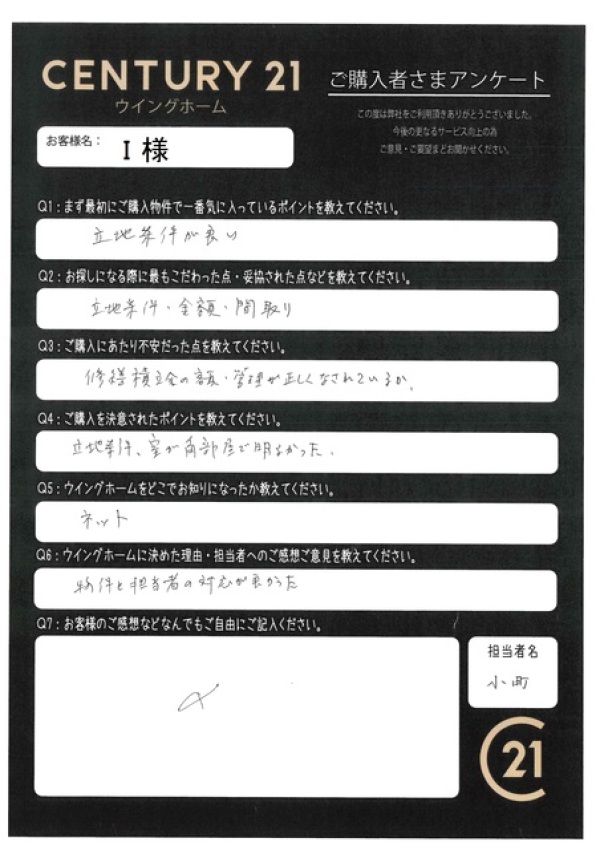 CENTURY 21
ウイングホーム
ご購入者さまアンケート
この度は弊社をご利用頂きありがとうございました。
今後の更なるサービス向上の為
ご意見・ご要望をお聞かせください。
お客様名： I 様
Q1：まず最初にご購入物件で一番気に入っているポイントを教えてください。
立地条件が良い
Q2：お探しになる際に最もこだわった点・妥協された点などを教えてください。
立地条件・金額・間取り
Q3：ご購入にあたり不安だった点を教えてください。
修繕積立金の額・管理が正しくなされているか。
Q4：ご購入を決意されたポイントを教えてください。
立地条件、室が角部屋で明るかった。
Q5：ウイングホームをどこでお知りになったか教えてください。
ネット
Q6：ウイングホームに決めた理由・担当者へのご感想ご意見を教えてください。
物件と担当者の対応が良かった
Q7：お客様のご感想などなんでもご自由にご記入ください。
担当者名
小町
21